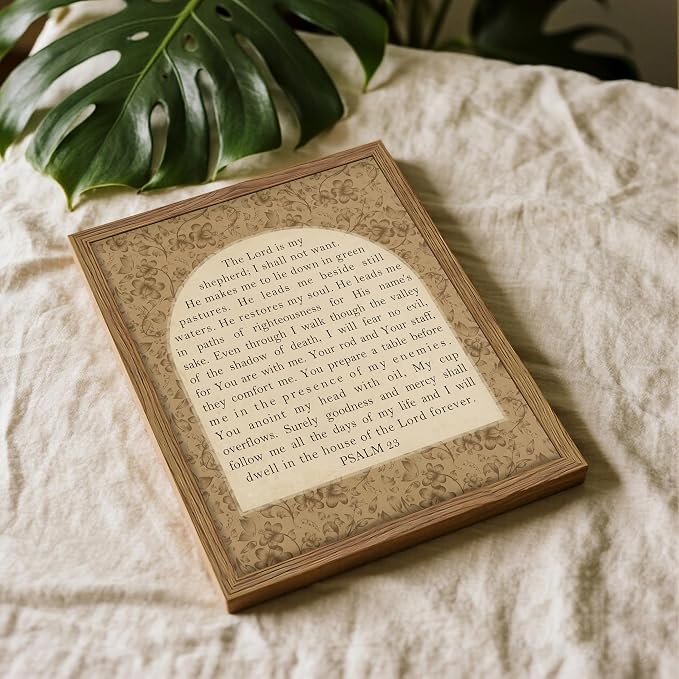 The Lord is my
shepherd; I shall not want.
He makes me to lie down in green
pastures. He leads me beside still
waters. He restores my soul. He leads me
in paths of righteousness for His name's
sake. Even through I walk though the valley
of the shadow of death, I will fear no evil,
for You are with me. Your rod and Your staff,
they comfort me. You prepare a table before
me in the presence of my enemies.
You anoint my head with oil. My cup
overflows. Surely goodness and mercy shall
follow me all the days of my life and I will
dwell in the house of the Lord forever.
PSALM 23